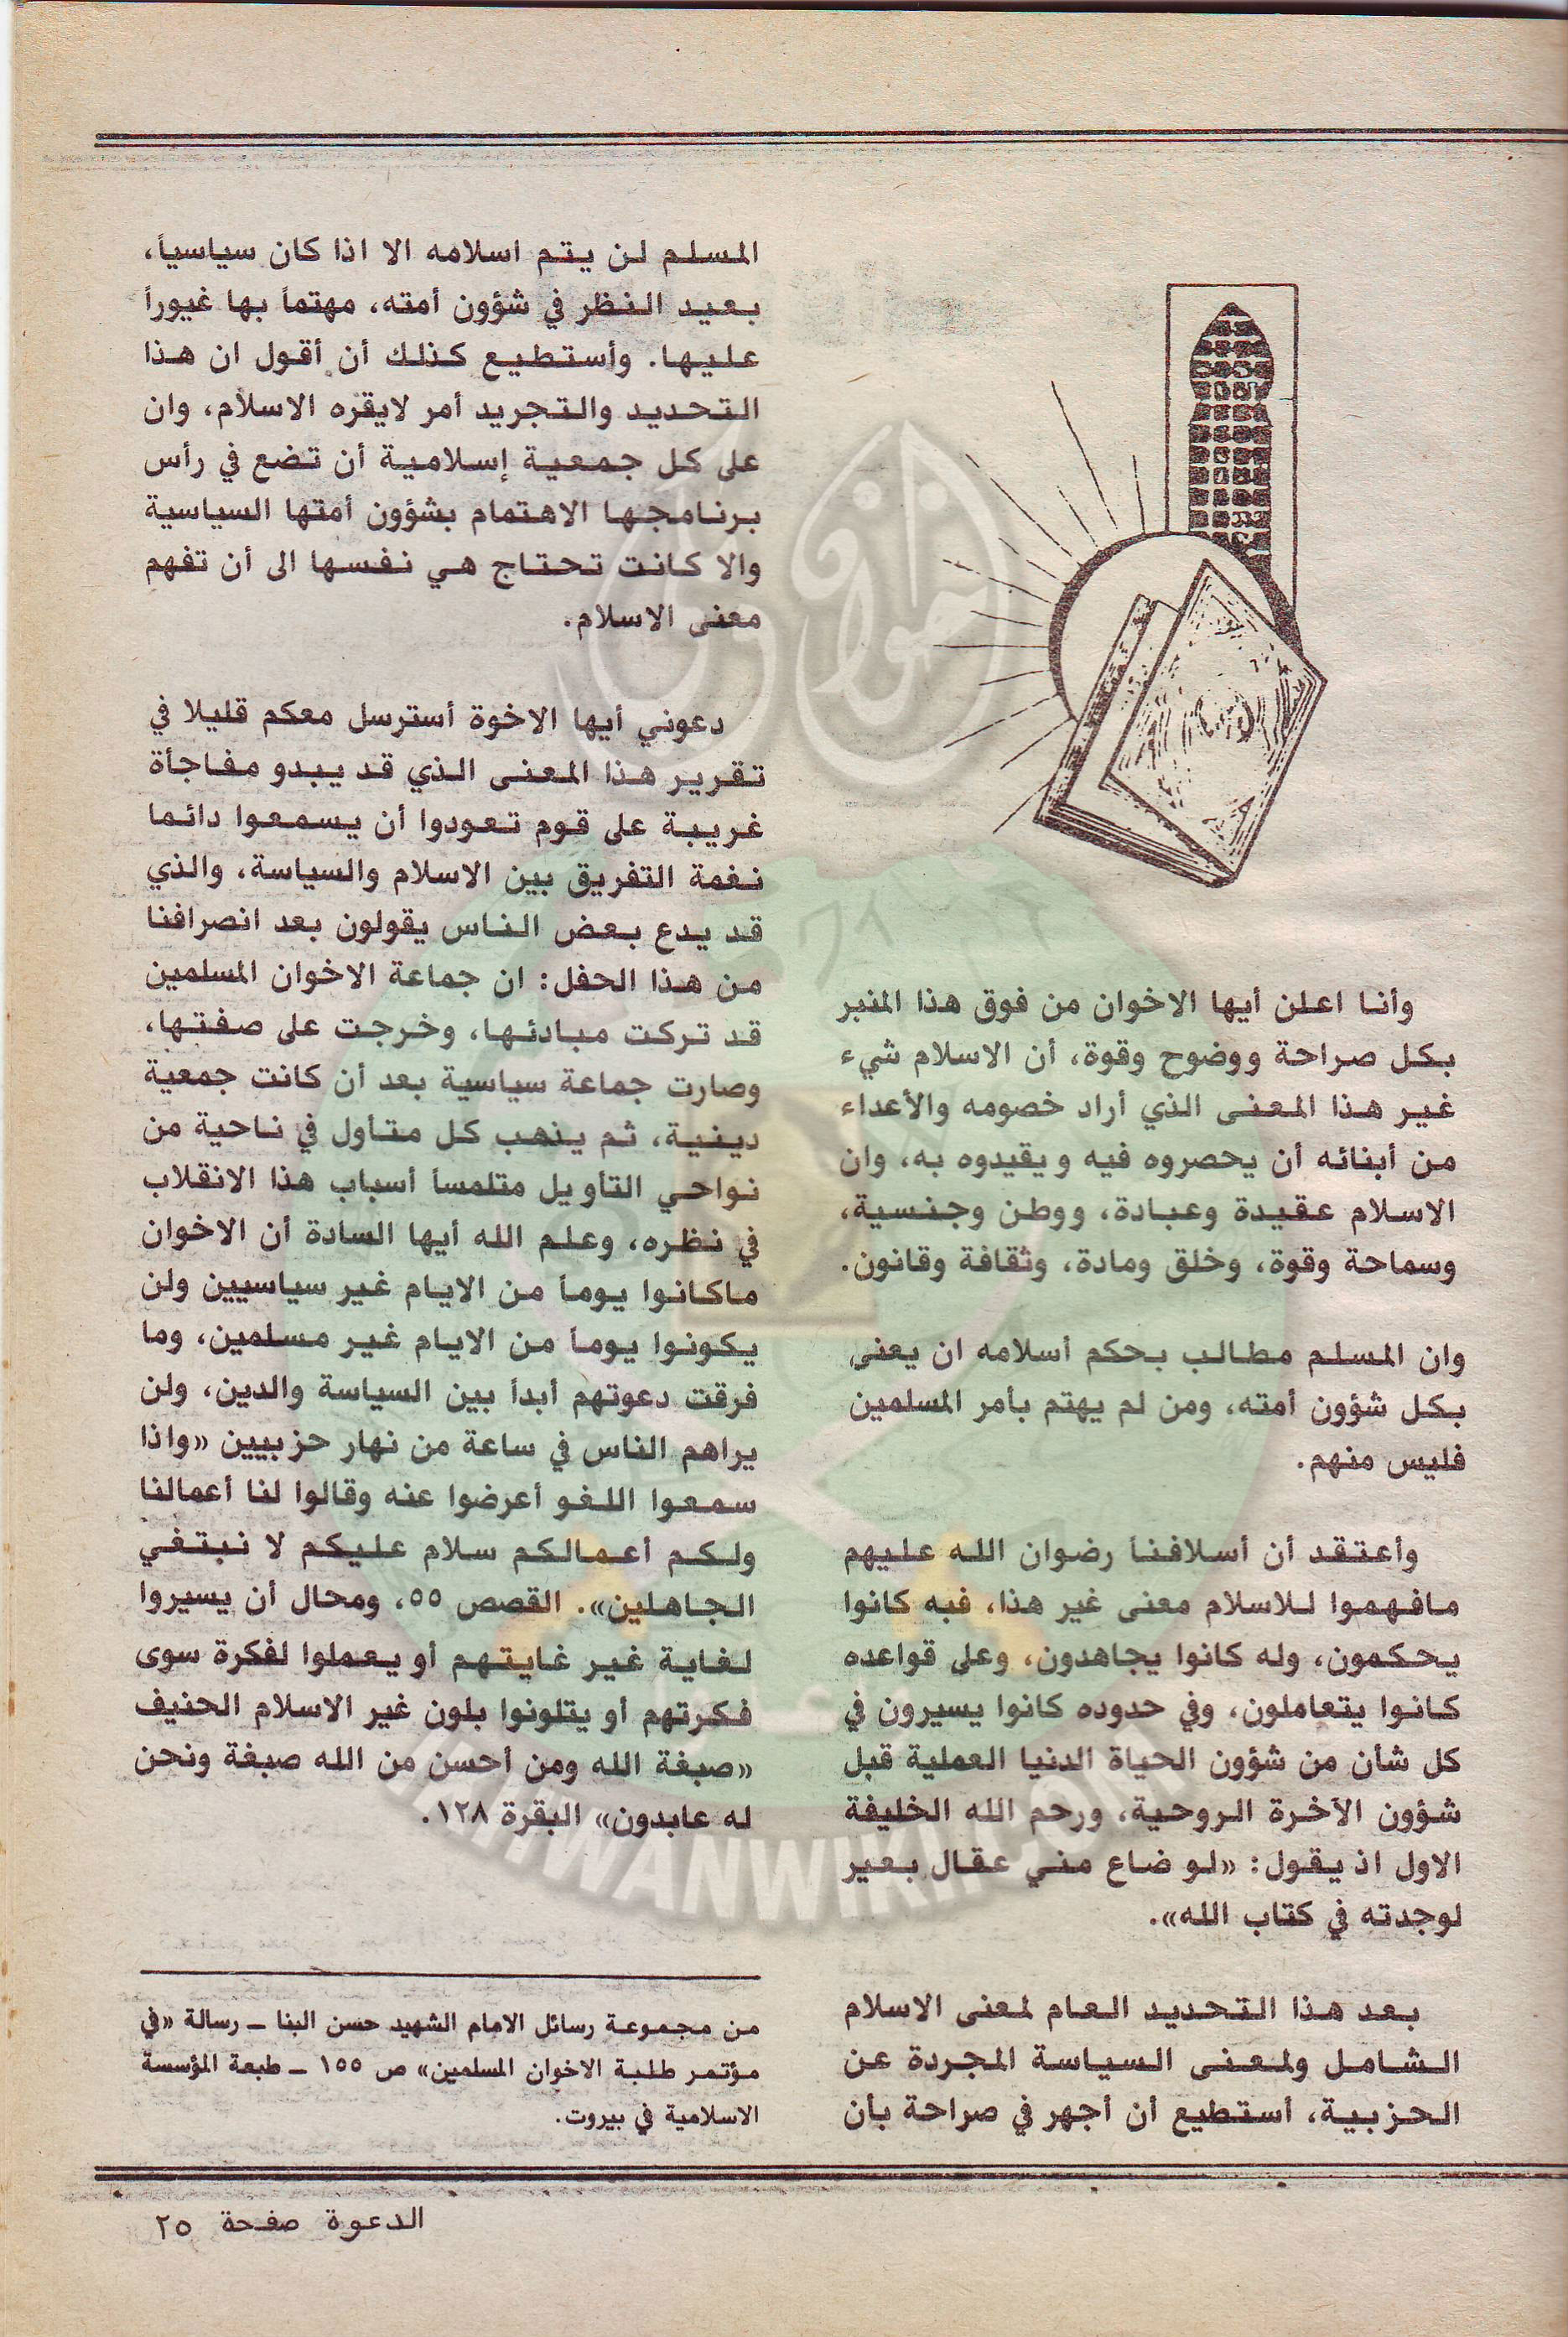 وأنا اعلن أيها الاخوان من فوق هذا المنبر
بكل صراحة ووضوح وقوة، أن الاسلام شيء
غير هذا المعنى الذي أراد خصومه والأعداء
من أبنائه أن يحصروه فيه ويقيدوه به، وان
الاسلام عقيدة وعبادة، ووطن وجنسية،
وسماحة وقوة، وخلق ومادة، وثقافة وقانون.
وان المسلم مطالب بحكم أسلامه ان يعنى
بكل شؤون أمته، ومن لم يهتم بأمر المسلمين
فليس منهم.
وأعتقد أن أسلافنا رضوان الله عليهم
مافهموا للاسلام معنى غير هذا، فبه كانوا
يحكمون، وله كانوا يجاهدون، وعلى قواعده
كانوا يتعاملون، وفي حدوده كانوا يسيرون في
كل شأن من شؤون الحياة الدنيا العملية قبل
شؤون الآخرة الروحية، ورحم الله الخليفة
الاول اذ يقول: «لو ضاع مني عقال بعير
لوجدته في كتاب الله».
بعد هذا التحديد العام لمعنى الاسلام
الشامل ولمعنى السياسة المجردة عن
الحزبية، أستطيع أن أجهر في صراحة بأن
المسلم لن يتم اسلامه الا اذا كان سياسياً،
بعيد النظر في شؤون أمته، مهتماً بها غيوراً
عليها. وأستطيع كذلك أن أقول ان هذا
التحديد والتجريد أمر لايقره الاسلام، وان
على كل جمعية إسلامية أن تضع في رأس
برنامجها الاهتمام بشؤون أمتها السياسية
والا كانت تحتاج هي نفسها الى أن تفهم
معنى الاسلام.
دعوني أيها الاخوة أسترسل معكم قليلا في
تقرير هذا المعنى الذي قد يبدو مفاجأة
غريبة على قوم تعودوا أن يسمعوا دائما
نغمة التفريق بين الاسلام والسياسة، والذي
قد يدع بعض الناس يقولون بعد انصرافنا
من هذا الحفل: ان جماعة الاخوان المسلمين
قد تركت مبادئها، وخرجت على صفتها،
وصارت جماعة سياسية بعد أن كانت جمعية
دينية، ثم يذهب كل متأول في ناحية من
نواحي التأويل متلمساً أسباب هذا الانقلاب
في نظره، وعلم الله أيها السادة أن الاخوان
ماكانوا يوماً من الايام غير سياسيين ولن
يكونوا يوماً من الايام غير مسلمين، وما
فرقت دعوتهم أبداً بين السياسة والدين، ولن
يراهم الناس في ساعة من نهار حزبيين «واذا
سمعوا اللغو أعرضوا عنه وقالوا لنا أعمالنا
ولكم أعمالكم سلام عليكم لا نبتغي
الجاهلين». القصص ٥٥، ومحال أن يسيروا
لغاية غير غايتهم أو يعملوا لفكرة سوى
فكرتهم أو يتلونوا بلون غير الاسلام الحنيف
«صبغة الله ومن أحسن من الله صبغة ونحن
له عابدون» البقرة ١٢٨.
من مجموعة رسائل الامام الشهيد حسن البنا ــ رسالة «في
مؤتمر طلبة الاخوان المسلمين» ص ١٥٥ ــ طبعة المؤسسة
الاسلامية في بيروت.
الدعوة صفحة ٢٥